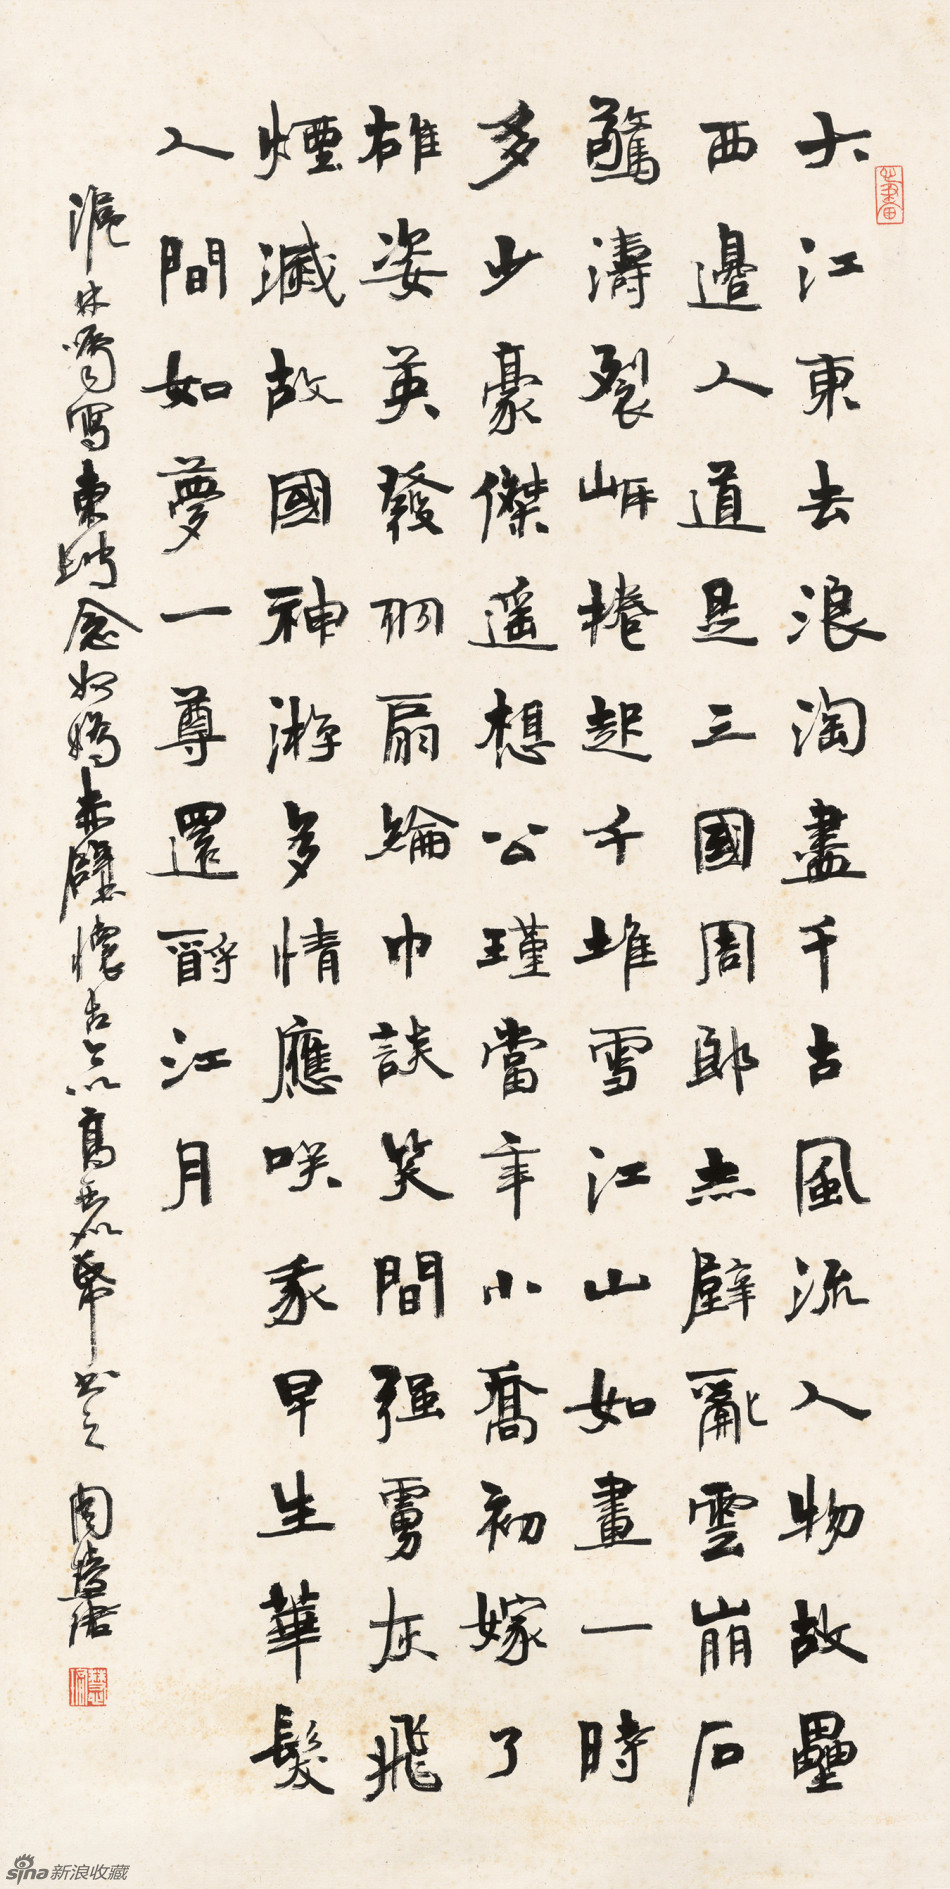 大江東去浪淘盡千古風流人物故壘
西邊人道是三國周郎赤壁亂雲崩石
驚濤裂岸捲起千堆雪江山如畫一時
多少豪傑遥想公瑾當年小喬初嫁了
雄姿英發羽扇綸巾談笑間强虜灰飛
煙滅故國神游多情應咲我早生華髮
人間如夢一尊還酹江月
林囑寫東坡念奴嬌赤壁懷古書之 周慧珺
sina新浪收藏